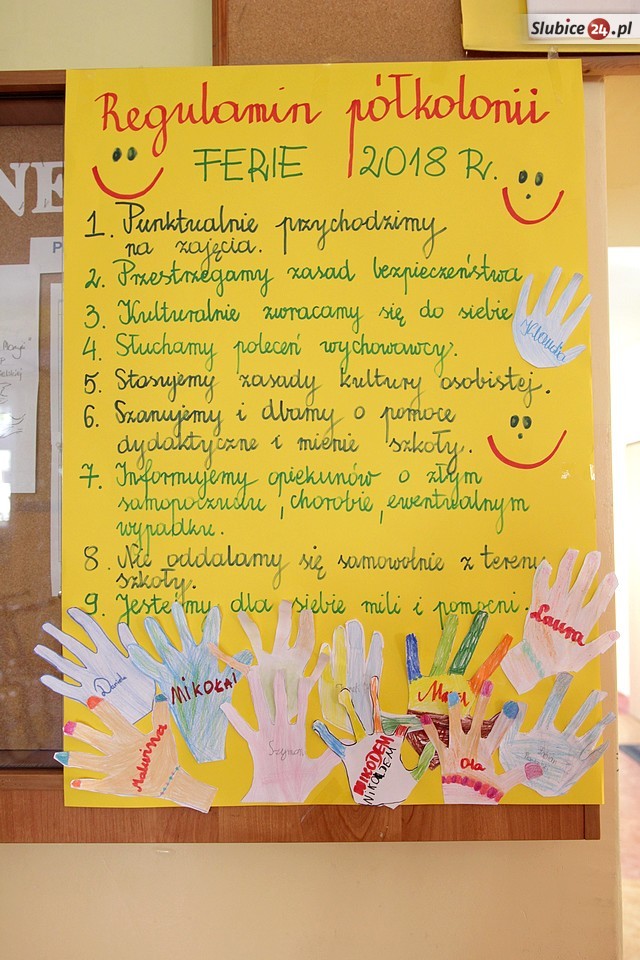 Slubice24.pl
NE
Regulamin półkolonii
FERIE 2018 R.
1. Punktualnie przychodzimy
na zajęcia.
2. Przestrzegamy zasad bezpieczeństwa
3. Kulturalnie zwracamy się do siebie
4. Słuchamy poleceń wychowawcy.
5. Stosujemy zasady kultury osobistej.
6. Szanujemy i dbamy o pomoce
dydaktyczne i mienie szkoły.
7. Informujemy opiekunów o złym
samopoczuciu, chorobie, ewentualnym
wypadku.
8. Nie oddalamy się samowolnie z terenu
szkoły.
9. Jesteśmy dla siebie mili i pomocni.
Laura
MIKOŁAJ
Malwina
Szymon
NIKODEM
NIKODEM
Ola